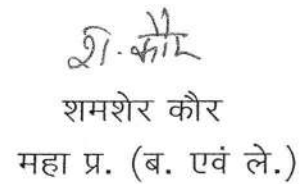 श. कौर
शमशेर कौर
महा प्र. (ब. एवं ले.)